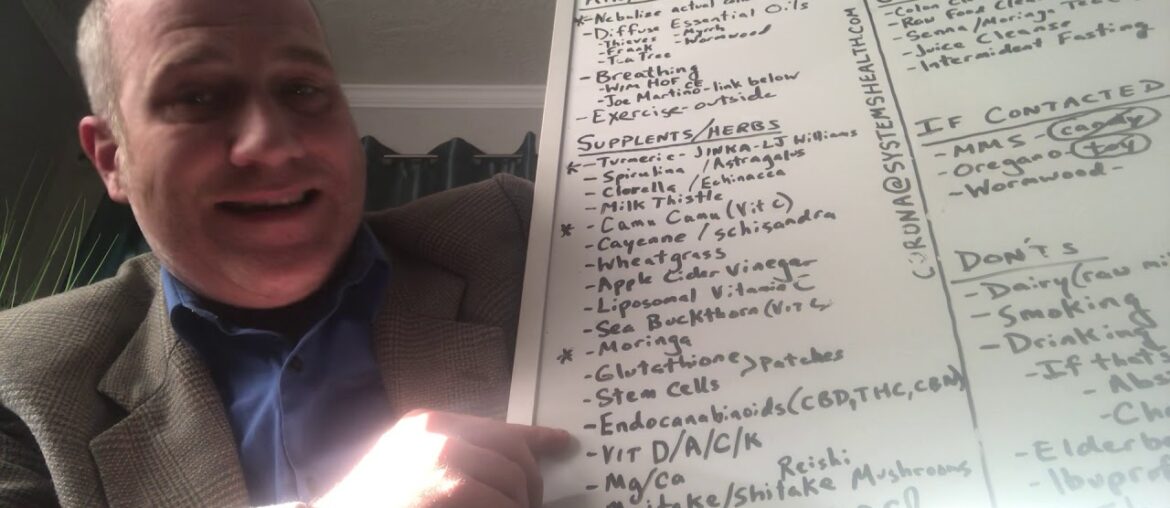 - Nebulize actual
- Diffuse Essential Oils
- Thieves - Myrrh
- Frank - Wormwood
- Tea Tree
- Breathing
- Wim HOF
- Joe Martino - link below
- Exercise - outside
SUPPLENTS/HERBS
* - Turmeric - JINKA - LJ Williams
- Spirulina / Astragalus
- Clorella / Echinacea
- Milk Thistle
* - Camu Camu (Vit C)
- Cayenne / schisandra
- Wheatgrass
- Apple Cider Vinegar
- Liposomal Vitamin C
- Sea Buckthorn (Vit C)
* - Moringa
- Glutathione > Patches
- Stem Cells
- Endocanabinoids (CBD, THC, CBN)
- VIT D/A/C/K
- Mg/Ca
Reishi
/Shitake Mushrooms
CORONA@SYSTEMSHEALTH.COM
- Colon
- Raw Food
- Senna/Moringa
- Juice Cleanse
- Intermident Fasting
IF CONTACTED
- MMS - candy
- Oregano - toy
- Wormwood -
DON'TS
- Dairy (raw
- Smoking
- Drinking
- If that's
- Elderb
- Ibupro